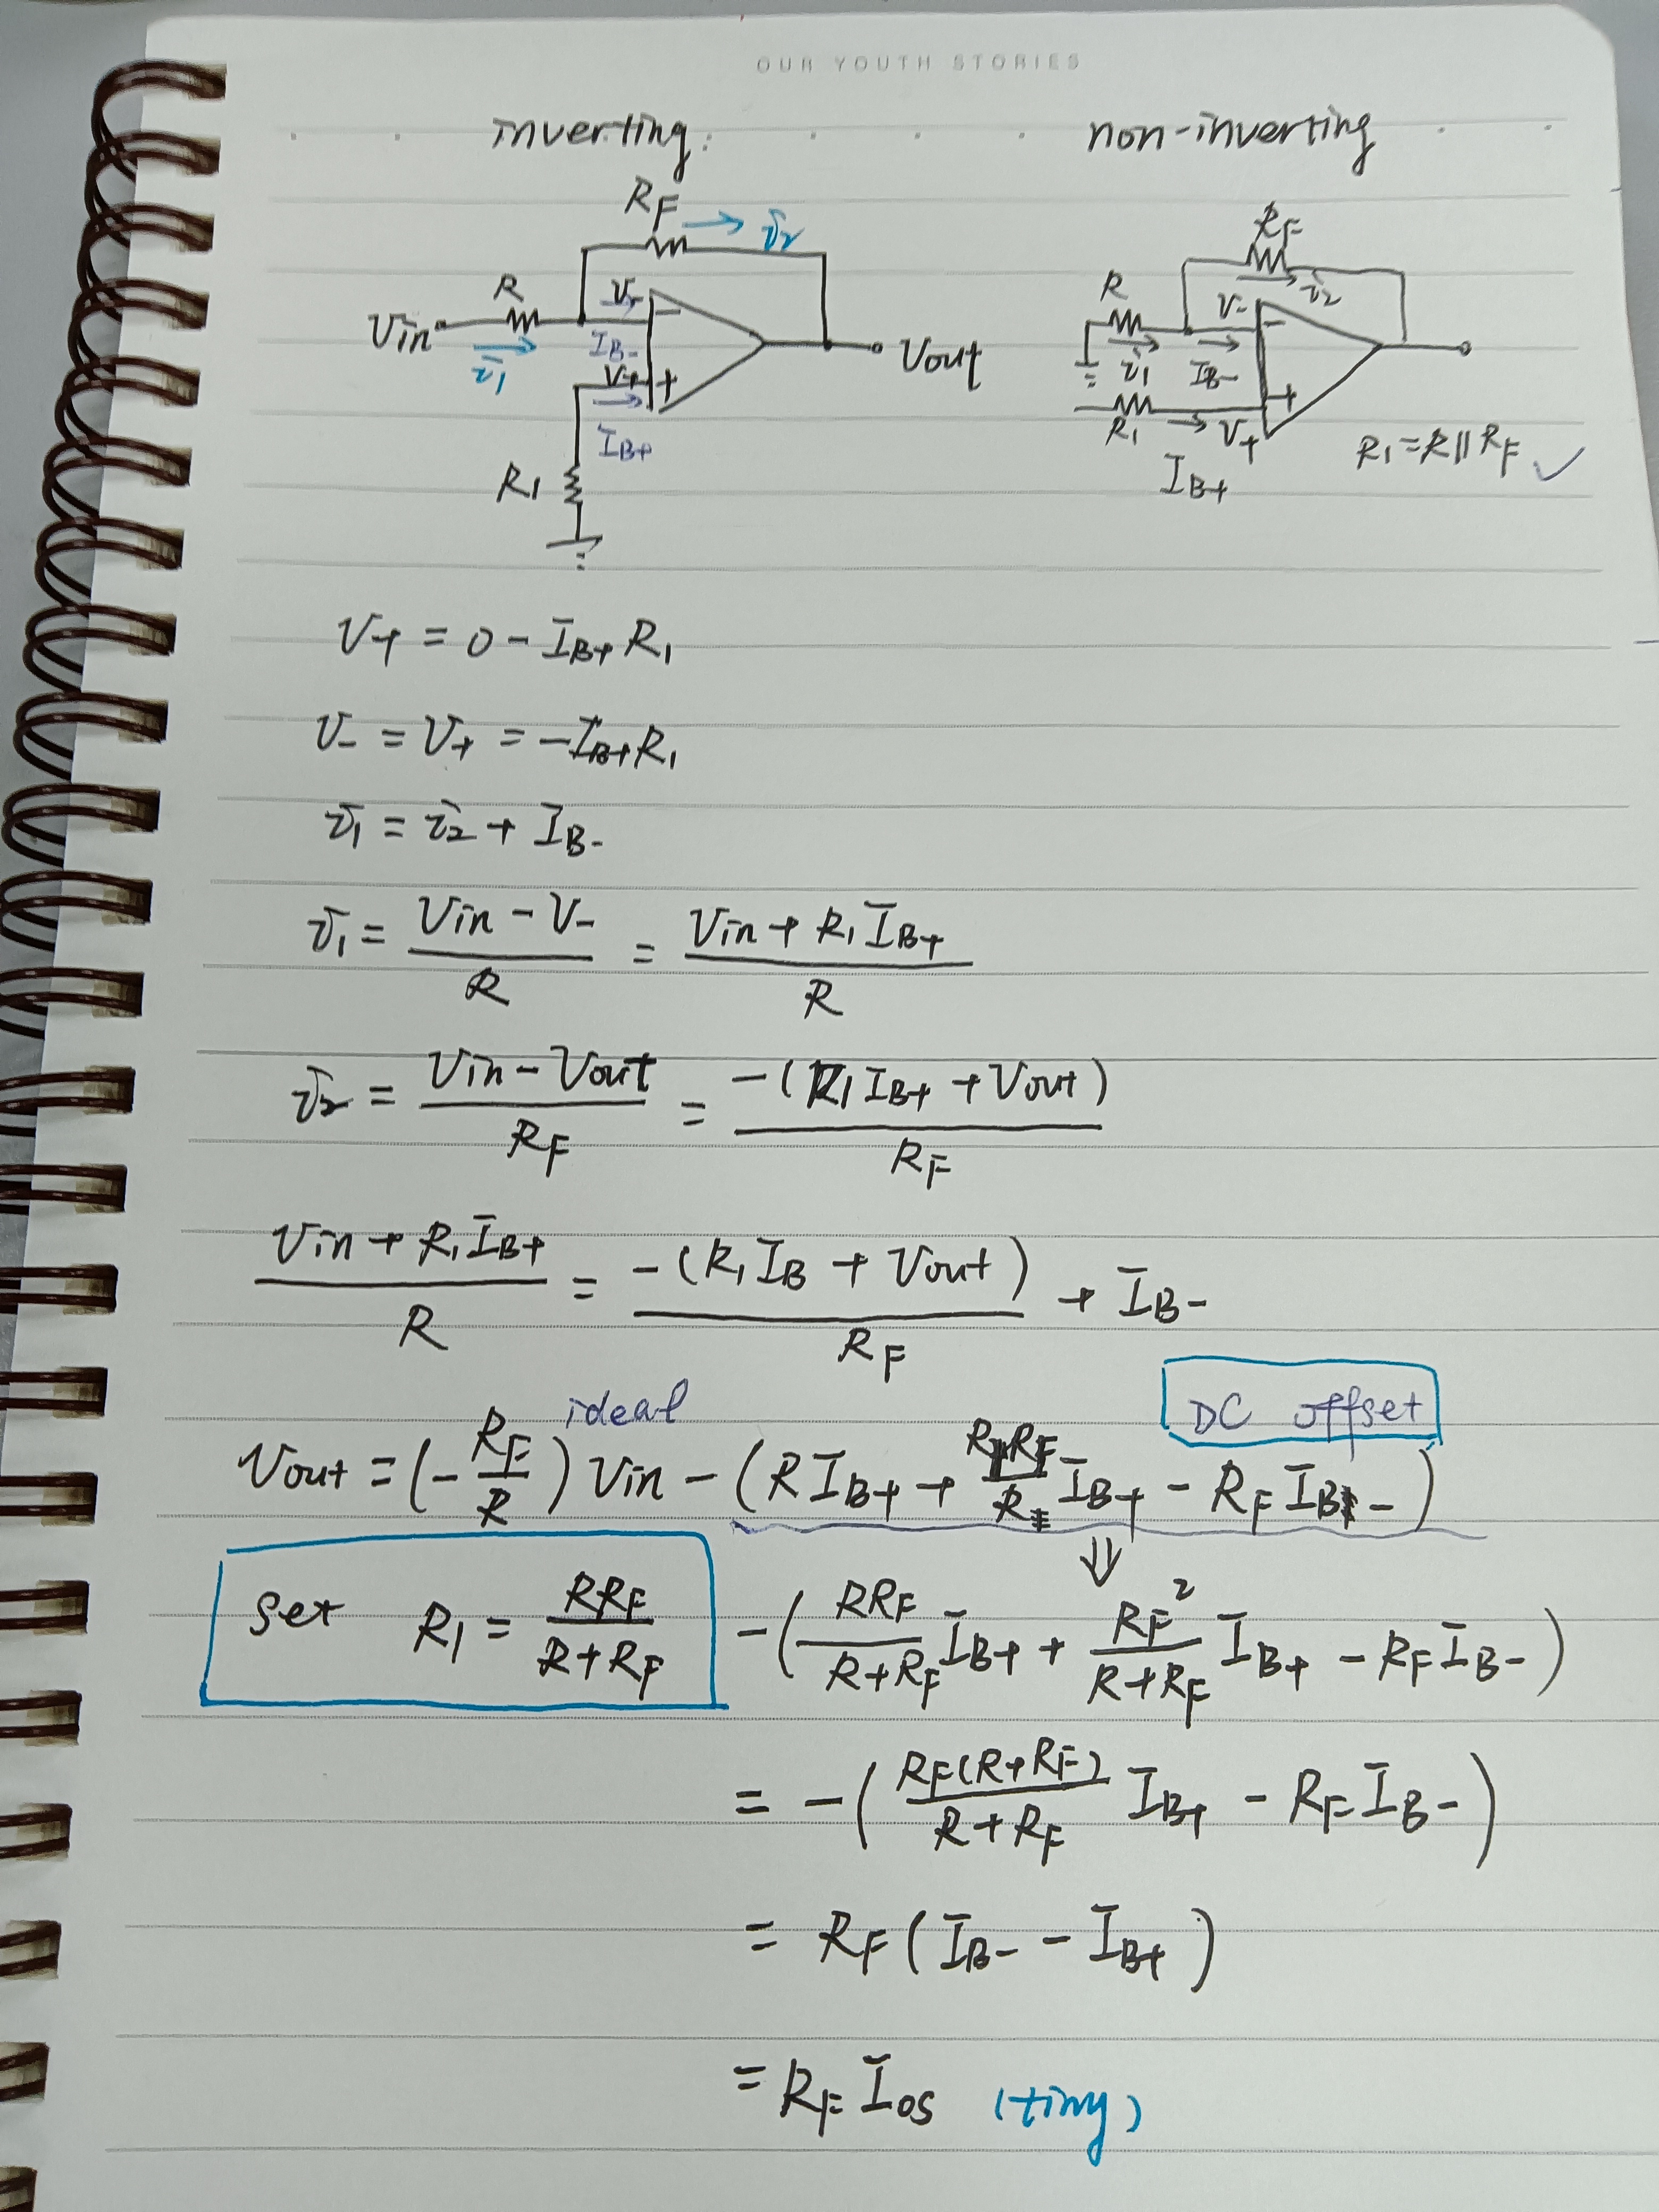 OUR YOUTH STORIES
inverting: non-inverting
RF i2
R V- Vin i1 IB- V+ IB+ R1 Vout
- +
RF i2
R V- i1 IB- R1 V+ IB+
- +
R1 = R || RF ✓
V+ = 0 - IB+ R1
V- = V+ = -IB+ R1
i1 = i2 + IB-
i1 = (Vin - V-)/R = (Vin + R1 IB+)/R
i2 = (Vin - Vout)/RF = -(R1 IB+ + Vout)/RF
(Vin + R1 IB+)/R = -(R1 IB + Vout)/RF + IB-
ideal DC offset
Vout = (-RF/R) Vin - (R IB+ + (R1 RF/R) IB+ - RF IB-)
⇓
set R1 = RRF/(R+RF) -((RRF/(R+RF)) IB+ + (RF²/(R+RF)) IB+ - RF IB-)
= -((RF(R+RF)/(R+RF)) IB+ - RF IB-)
= RF (IB- - IB+)
= RF IOS (tiny)